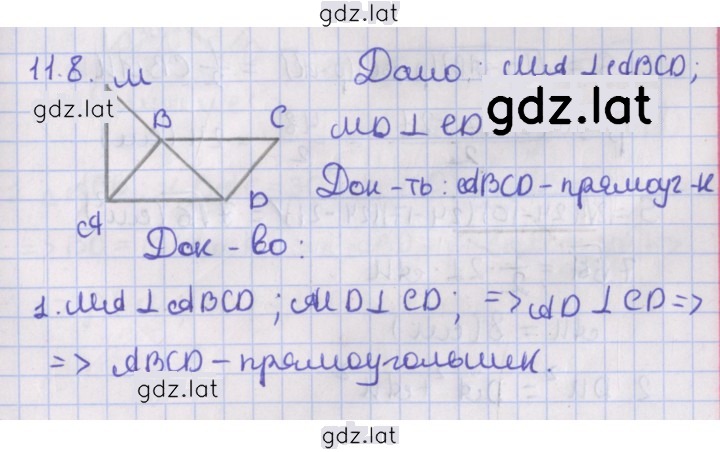 gdz.lat
11.8. M
Дано: MA ⊥ ABCD;
gdz.lat
B C
gdz.lat
MD ⊥ CD
Док-ть: ABCD - прямоуг-к
A D
Док-во:
1. MA ⊥ ABCD; MD ⊥ CD; => AD ⊥ CD =>
=> ABCD - прямоугольник.
gdz.lat
gdz.lat